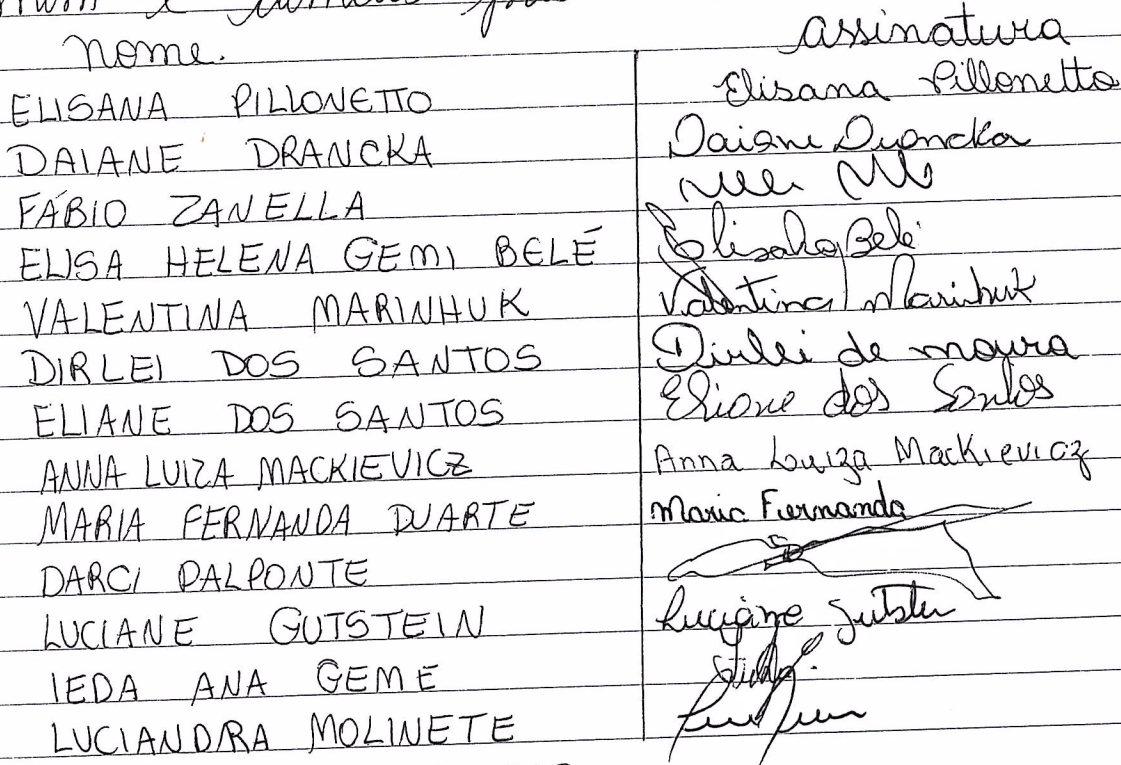 nome. assinatura
ELISANA PILLONETTO Elisana Pillonetto
DAIANE DRANCKA Daiane Drancka
FÁBIO ZANELLA
ELISA HELENA GEMI BELÉ Elisa Belé
VALENTINA MARINHUK Valentina Marinhuk
DIRLEI DOS SANTOS Dirlei de moura
ELIANE DOS SANTOS Eliane dos Santos
ANNA LUIZA MACKIEVICZ Anna Luiza Mackievicz
MARIA FERNANDA DUARTE Maria Fernanda
DARCI DALPONTE
LUCIANE GUTSTEIN Luciane
IEDA ANA GEME
LUCIANDRA MOLINETE